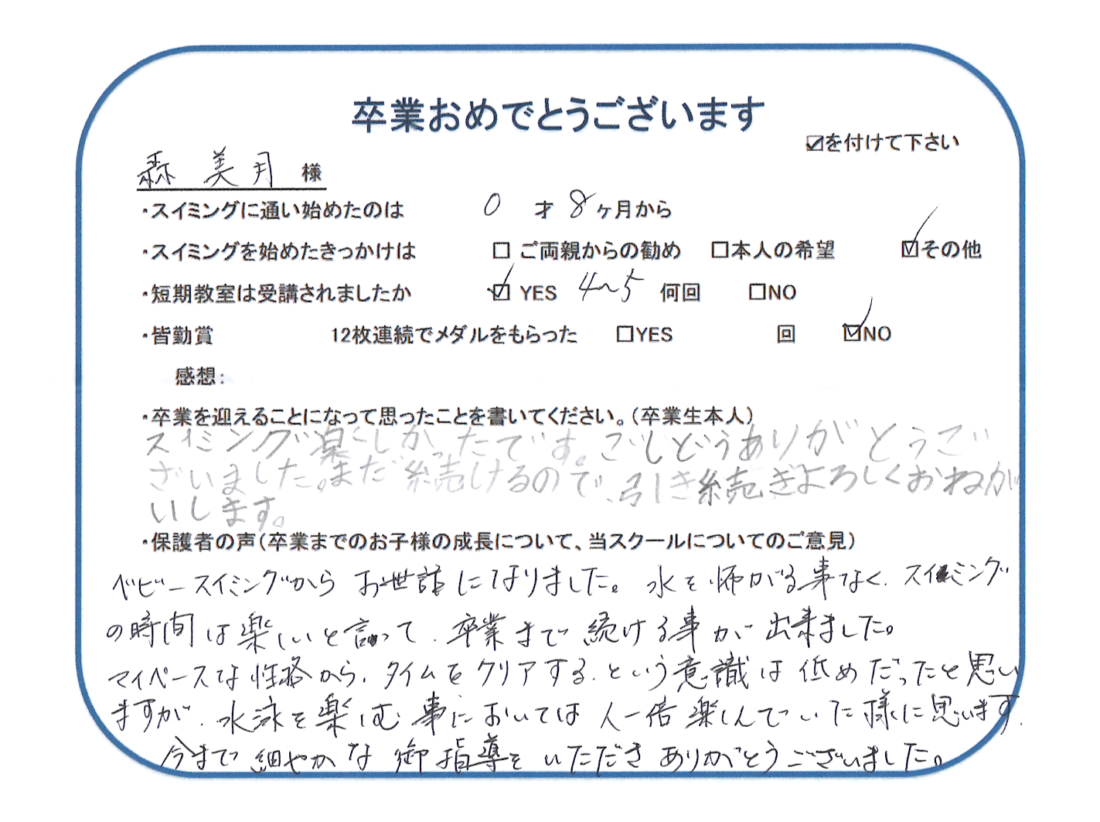 卒業おめでとうございます
☑を付けて下さい
森 美月 様
・スイミングに通い始めたのは 0 才 8 ヶ月から
・スイミングを始めたきっかけは □ ご両親からの勧め □本人の希望 ☑その他
・短期教室は受講されましたか ☑ YES 4〜5 何回 □NO
・皆勤賞 12枚連続でメダルをもらった □YES 回 ☑NO
感想：
・卒業を迎えることになって思ったことを書いてください。(卒業生本人)
スイミング楽しかったです。ごしどうありがとうご
ざいました。まだ続けるので、引き続ぎよろしくおねが
いします。
・保護者の声(卒業までのお子様の成長について、当スクールについてのご意見)
ベビースイミングから お世話になりました。水を怖がる事なく、スイミング
の時間は楽しいと言って、卒業まで続ける事が出来ました。
マイペースな性格から、タイムをクリアする、という意識は低めだったと思い
ますが、水泳を楽しむ事においては人一倍楽しんでいた様に思います。
今まで細やかな御指導をいただきありがとうございました。